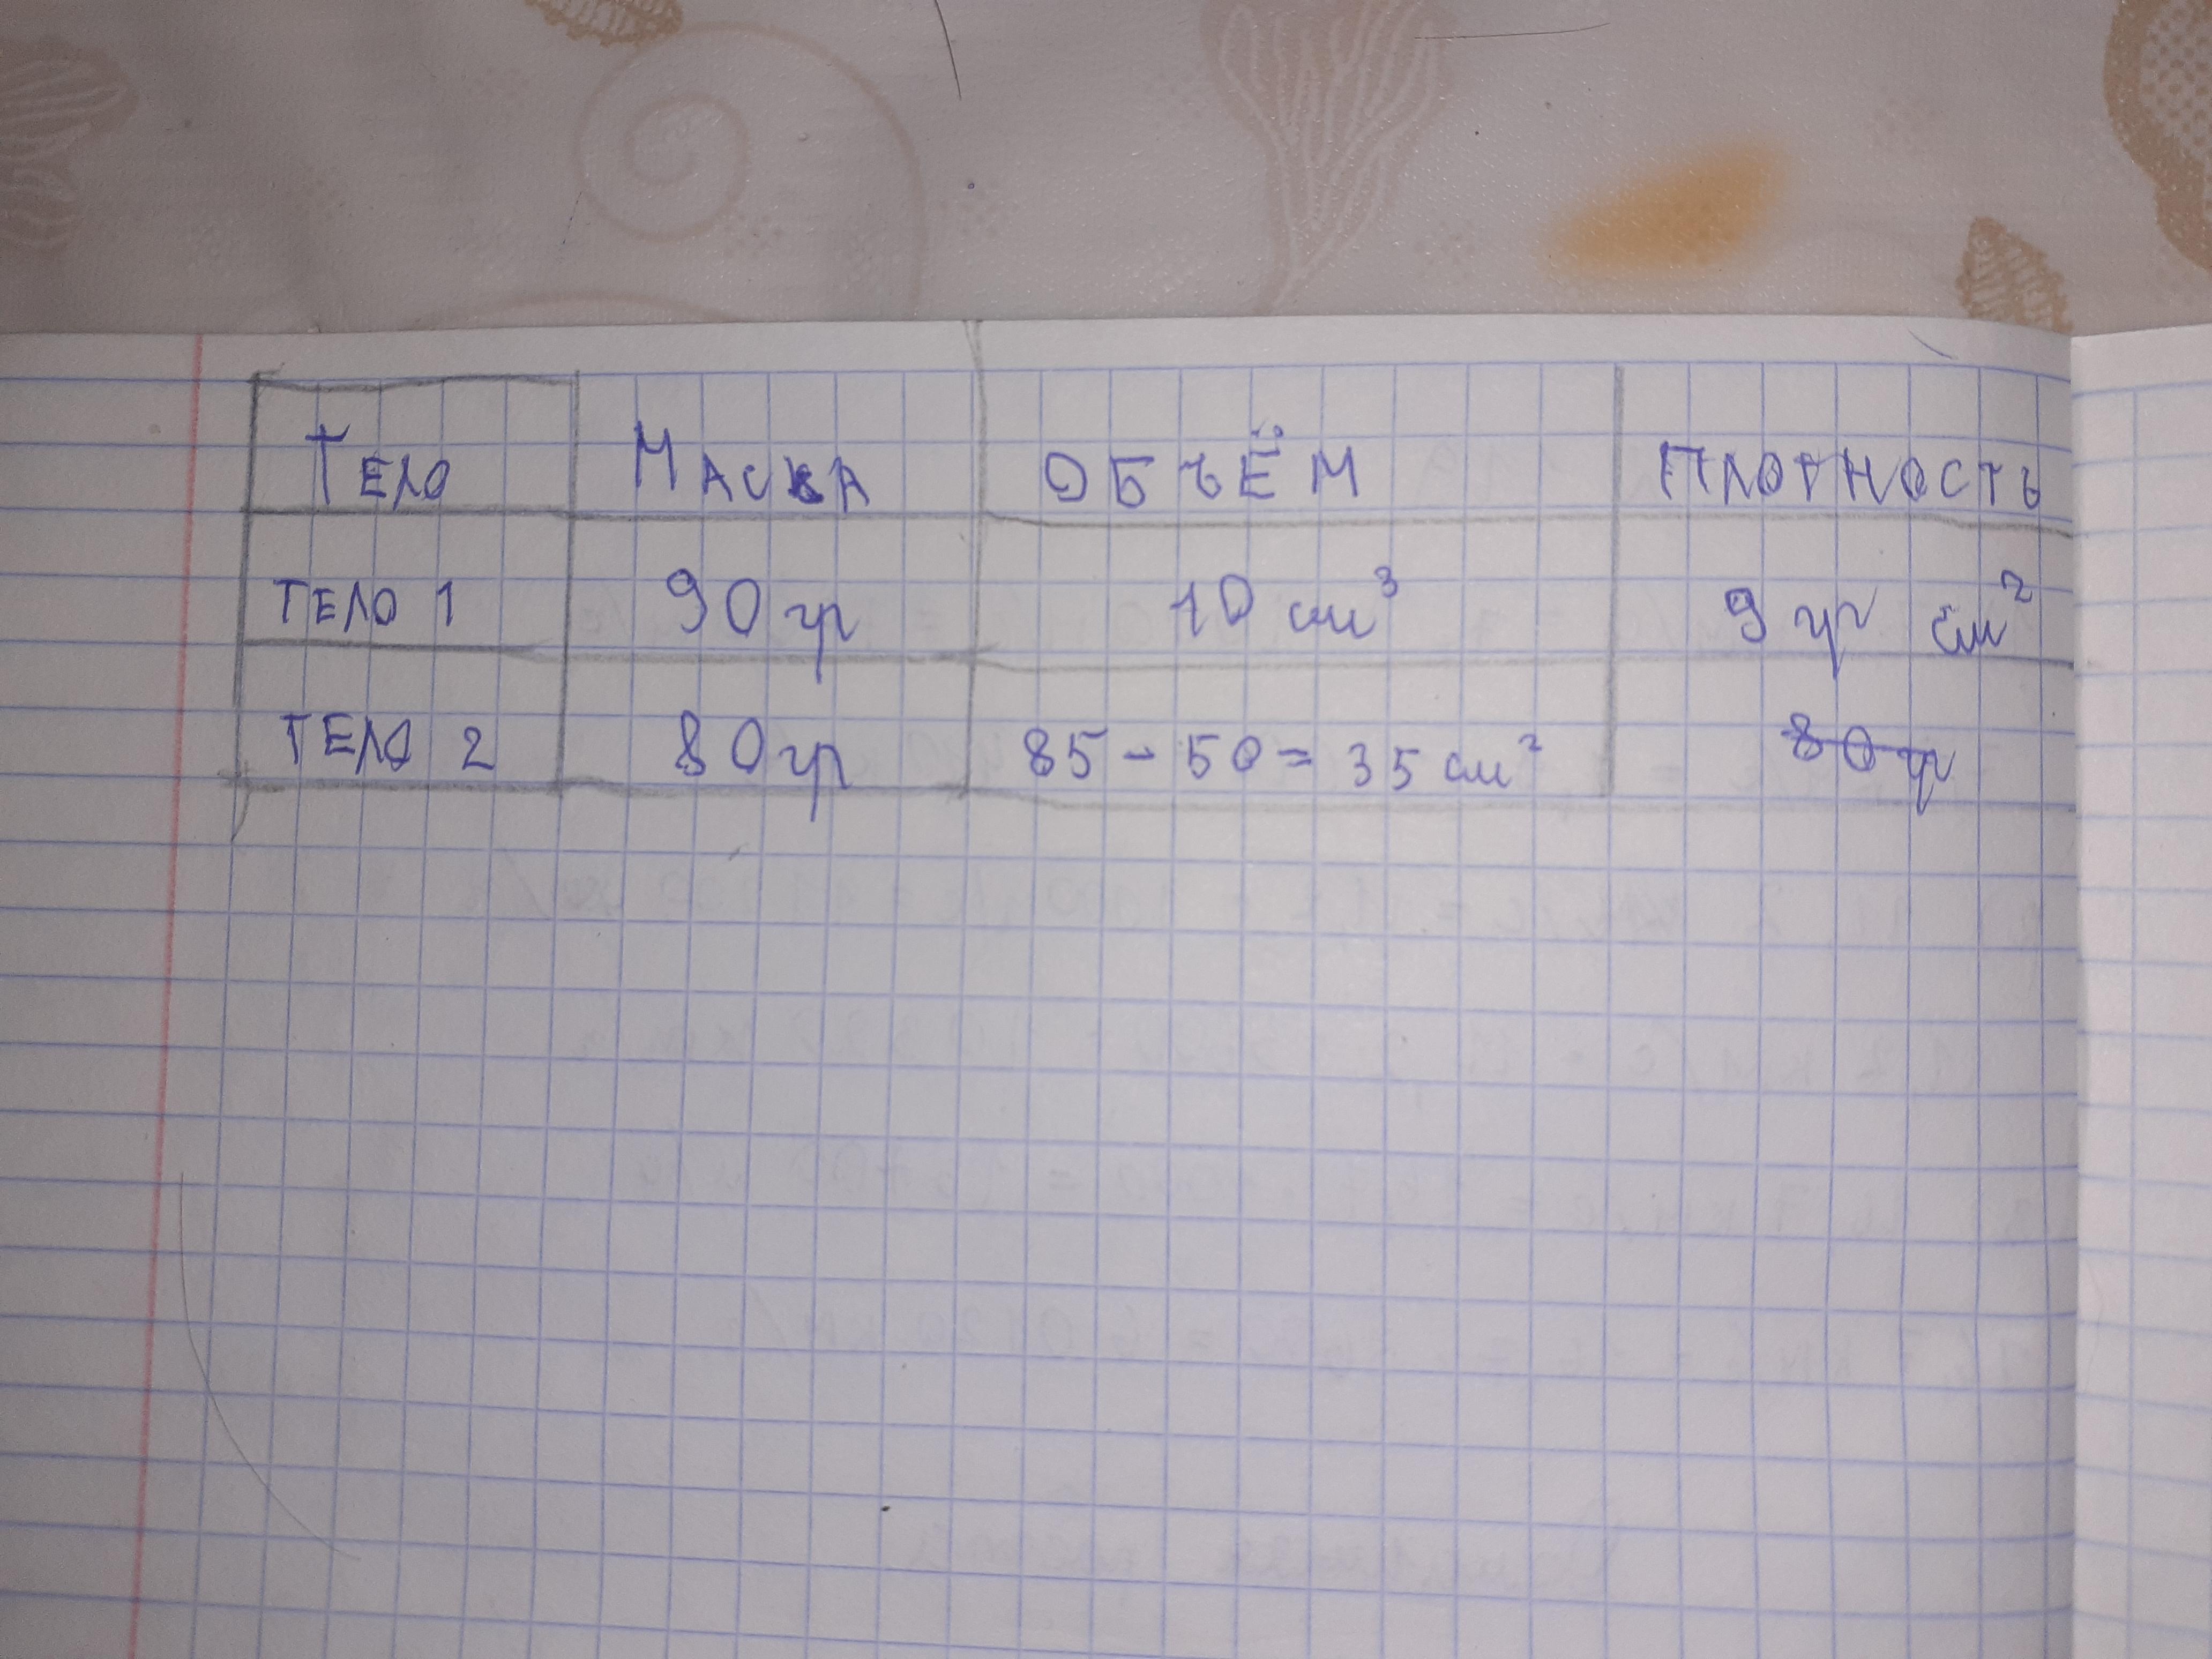 Тело Масса Объём Плотность
Тело 1 90 гр 10 см³ 9 гр см²
Тело 2 80 гр 85 - 50 = 35 см² 80 гр